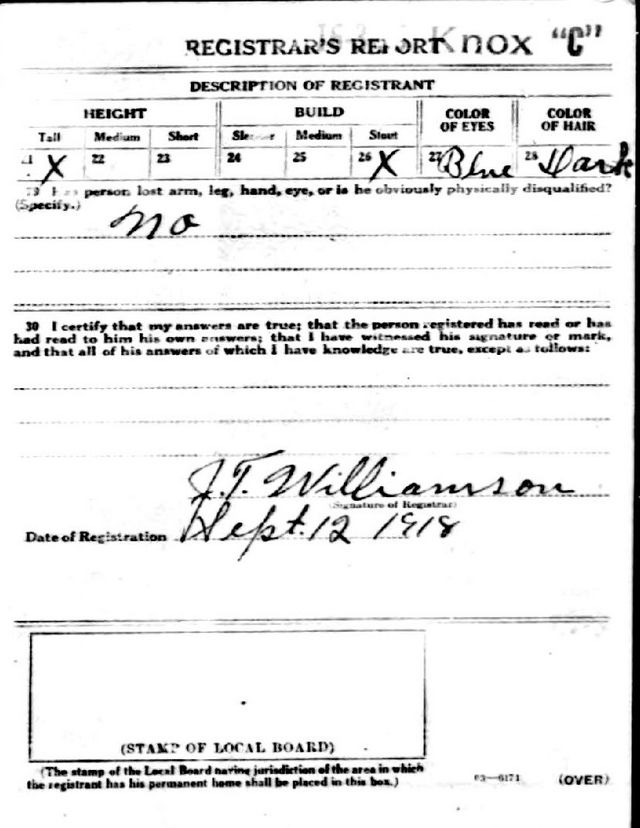 REGISTRAR'S REPORT Knox "C"
DESCRIPTION OF REGISTRANT
HEIGHT BUILD COLOR OF EYES COLOR OF HAIR
Tall Medium Short Slender Medium Stout
21 X 22 23 24 25 26 X 27 Blue 28 Dark
29 Has person lost arm, leg, hand, eye, or is he obviously physically disqualified?
(Specify.) no
30 I certify that my answers are true; that the person registered has read or has
had read to him his own answers; that I have witnessed his signature or mark,
and that all of his answers of which I have knowledge are true, except as follows:
J. T. Williamson
(Signature of Registrar)
Date of Registration Sept. 12 1918
(STAMP OF LOCAL BOARD)
(The stamp of the Local Board having jurisdiction of the area in which
the registrant has his permanent home shall be placed in this box.)
03—6171 (OVER)